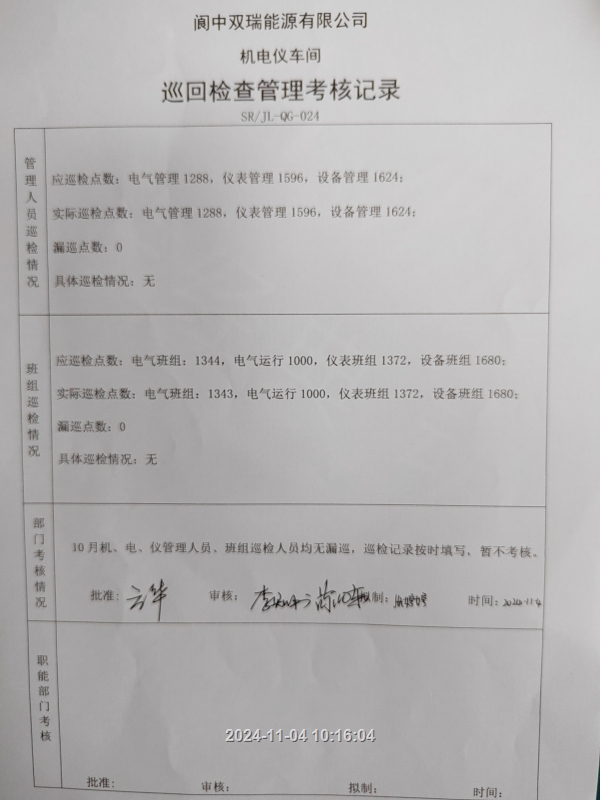 阆中双瑞能源有限公司
机电仪车间
巡回检查管理考核记录
SR/JL-QG-024
管理人员巡检情况
应巡检点数：电气管理1288，仪表管理1596，设备管理1624；
实际巡检点数：电气管理1288，仪表管理1596，设备管理1624；
漏巡点数：0
具体巡检情况：无
班组巡检情况
应巡检点数：电气班组：1344，电气运行1000，仪表班组1372，设备班组1680；
实际巡检点数：电气班组：1343，电气运行1000，仪表班组1372，设备班组1680；
漏巡点数：0
具体巡检情况：无
部门考核情况
10月机、电、仪管理人员、班组巡检人员均无漏巡，巡检记录按时填写、暂不考核。
批准： 审核： 拟制： 时间：2024.11.4
职能部门考核
2024-11-04 10:16:04
批准： 审核： 拟制： 时间：